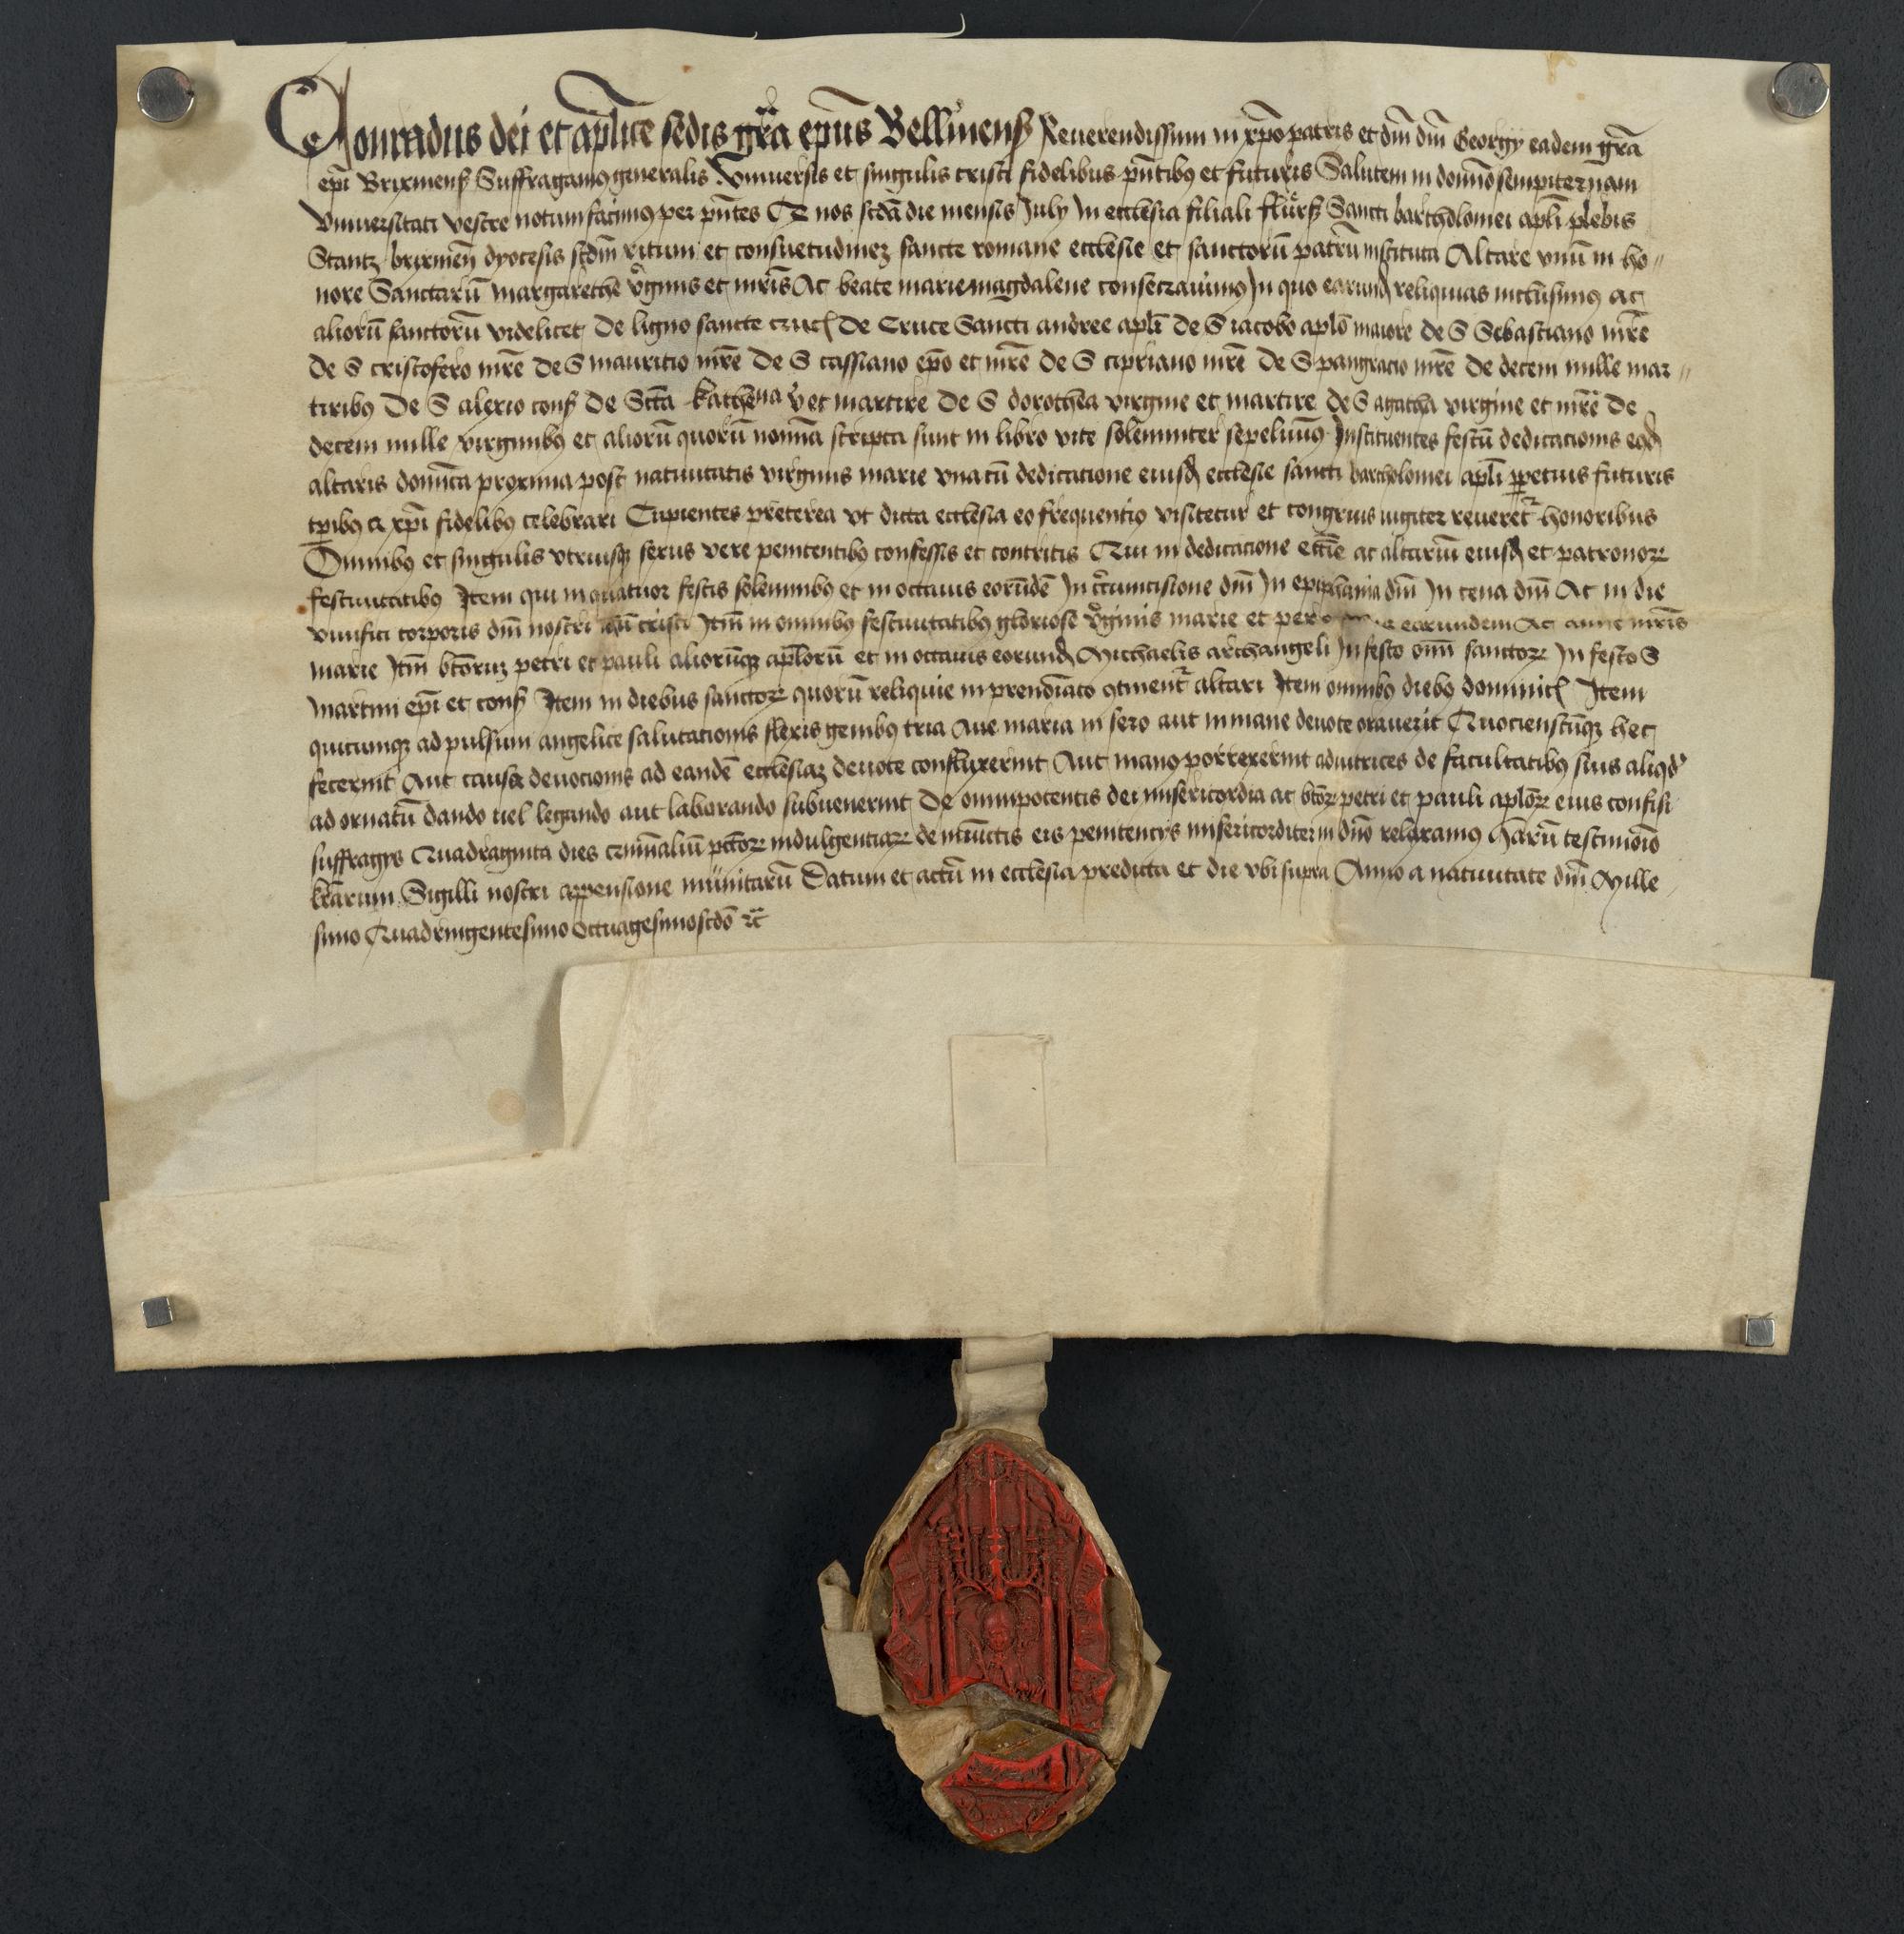 Conradus dei et aplice sedis gra epus Bellinens Reuerendissimi in xpo patris et dm dm Georgy eadem gra
epi Brixinens Suffraganeus generalis Vniuersis et singulis cristi fidelibus pntibus et futuris Salutem in domino sempiternam
Vniuersitati vestre notum facimus per pntes Q nos scda die mensis July In ecclesia filiali fliers Sancti bartholomei apli plebis
Stantz brixinen dyocesis scdm ritum et consuetudinez sancte romane ecclesie et sanctorū patrū instituta Altare vnū in ho〃
nore Sanctarū margarethe vginis et mris Ac beate marie magdalene consecrauimus In quo earund reliquias inclusimus ac
aliorū sanctorū videlicet De ligno sancte cruc De Cruce Sancti andree apli De S iacobo aplo maiore de S Sebastiano mre
De S cristofero mre De S mauritio mre De S cassiano epo et mre De S cipriano mre De S pangracio mre De decem mille mar〃
tiribus De S alexio conf De Scta kathena v et martire De S dorothea virgine et martire de S agatha virgine et mre De
decem mille virginibus et aliorū quorū nomina scripta sunt in libro vite solemniter sepeliuimus Instituentes festū dedicacionis eiusd
altaris dominica proxima post natiuitatis virginis marie vna cū dedicatione eiusd ecclesie sancti bartholomei apli ppetuis futuris
tpibus a xpi fidelibus celebrari Cupientes preterea vt dicta ecclesia eo frequentius visitetur et congruis iugiter reueret honoribus
Omnibus et singulis vtriusq sexus vere penitentibus confessis et contritis Qui in dedicacione ecclie ac altariū eiusd et patronor
festiuitatibus Item qui in quatuor festis solemnibus et in octauis eorūdē In circumcisione dni In epiphania dni In cena dni Ac in die
viuifici corporis dni nostri cristi Itm in omnibus festiuitatibus gloriose vginis marie et per earundem Ac anne mris
marie Itm btoruz petri et pauli aliorūq aplorū et in octauis eorund Michaelis archangeli In festo omi sanctor In festo S
martini epi et conf Item in diebus sanctor quorū reliquie in prenoiato ctinent altari Item omnibus diebus dominic Item
quicumq ad pulsum angelice salutacionis flexis genibus tria Aue maria in sero aut in mane deuote orauerit Quociensciq hec
fecerint Aut causa deuocionis ad eandē ecclesiaz deuote confluxerint Aut manus porrexerint adiutrices de facultatibus suis aliqd
ad ornatū dando uel legando aut laborando subuenerint De omnipotentis dei misericordia ac btor petri et pauli aplor eius confisi
suffragys Quadraginta dies criminaliū pctor indulgentiar de iniunctis eis penitencys misericorditer in dno relaxamus harū testimonio
lrarum Sigilli nostri appensione munitarū Datum et actū in ecclesia predicta et die vbi supra Anno a natiuitate dni Mille
simo Quadringentesimo Octuagesimoscdo rc